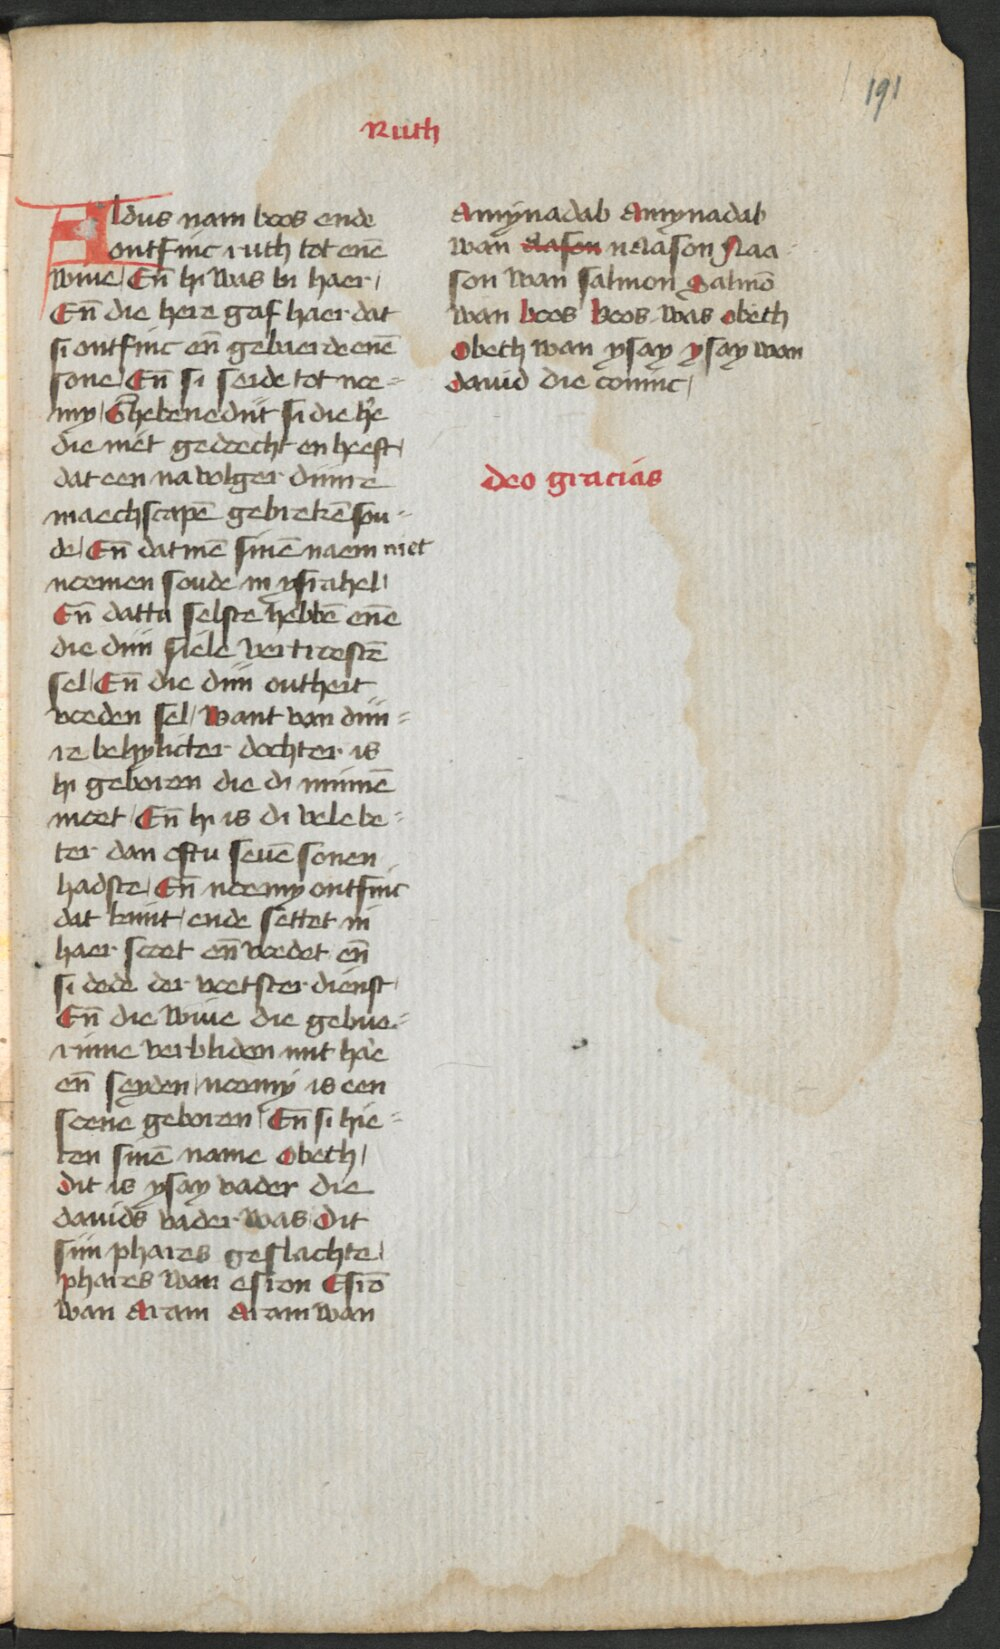 191
Ruth
Aldus nam boos ende
ontfinc ruth tot enē
wiue / En̄ hi was bi haer /
En̄ die here gaf haer dat
si ontfinc en̄ gebaerde enē
sone / En̄ si seide tot noe=
my / Ghebenedijt si die he͛e
die niet gedoecht en heeft /
dat een navolger dijnre
maechscapē gebrekē sou=
de / En̄ dat mē sinē naem niet
noemen soude in ysrahel /
En̄ dattu selste hebbē enē
die dijn siele vertroestē
sel / En̄ die dijn outheit
voeden sel / Want van dijn=
re behylicter dochter is
hi geboren die di minnē
moet / En̄ hi is di vele be=
ter dan oftu seuē sonen
hadste / En̄ noemy ontfinc
dat kint / ende settet in
haer scoet en̄ voedet en̄
si dede der voetster dienst /
En̄ die wiue die gebue=
rinne verbliden mit ha͛e
en̄ seyden / noemy is een
soene geboren / En̄ si hie=
ten sinē name Obeth /
Dit is ysay vader die
dauids vader was Dit
sijn phares geslachte /
phares wan esron Esrō
wan Aram Aram wan
Amynadab Amynadab
wan nason neason Naa
son wan salmon Salmō
wan boos Boos was obeth
Obeth wan ysay ysay wan
dauid die coninc /
deo gracias